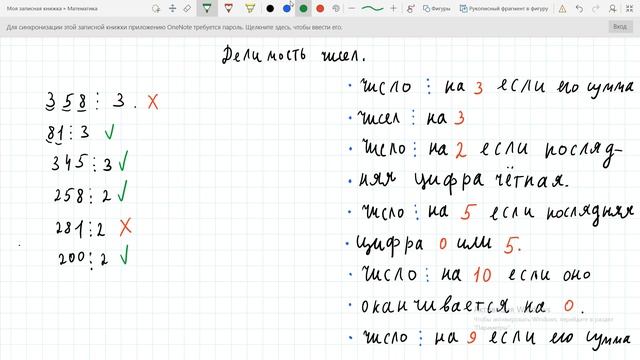 Моя записная книжка » Математика
Фигуры
Рукописный фрагмент в фигуру
Для синхронизации этой записной книжки приложению OneNote требуется пароль. Щелкните здесь, чтобы ввести его.
Вход
Делимость чисел.
358 ⋮ 3. X
81 ⋮ 3 ✓
345 ⋮ 3 ✓
258 ⋮ 2 ✓
281 ⋮ 2 X
200 ⋮ 2 ✓
• число ⋮ на 3 если его сумма
• чисел ⋮ на 3
• число ⋮ на 2 если послед-
• няя цифра чётная.
• число ⋮ на 5 если последняя
• цифра 0 или 5.
• число ⋮ на 10 если оно
• оканчивается на 0.
• число ⋮ на 9 если его сумма
Чтобы активировать Windows, перейдите в раздел
"Параметры".